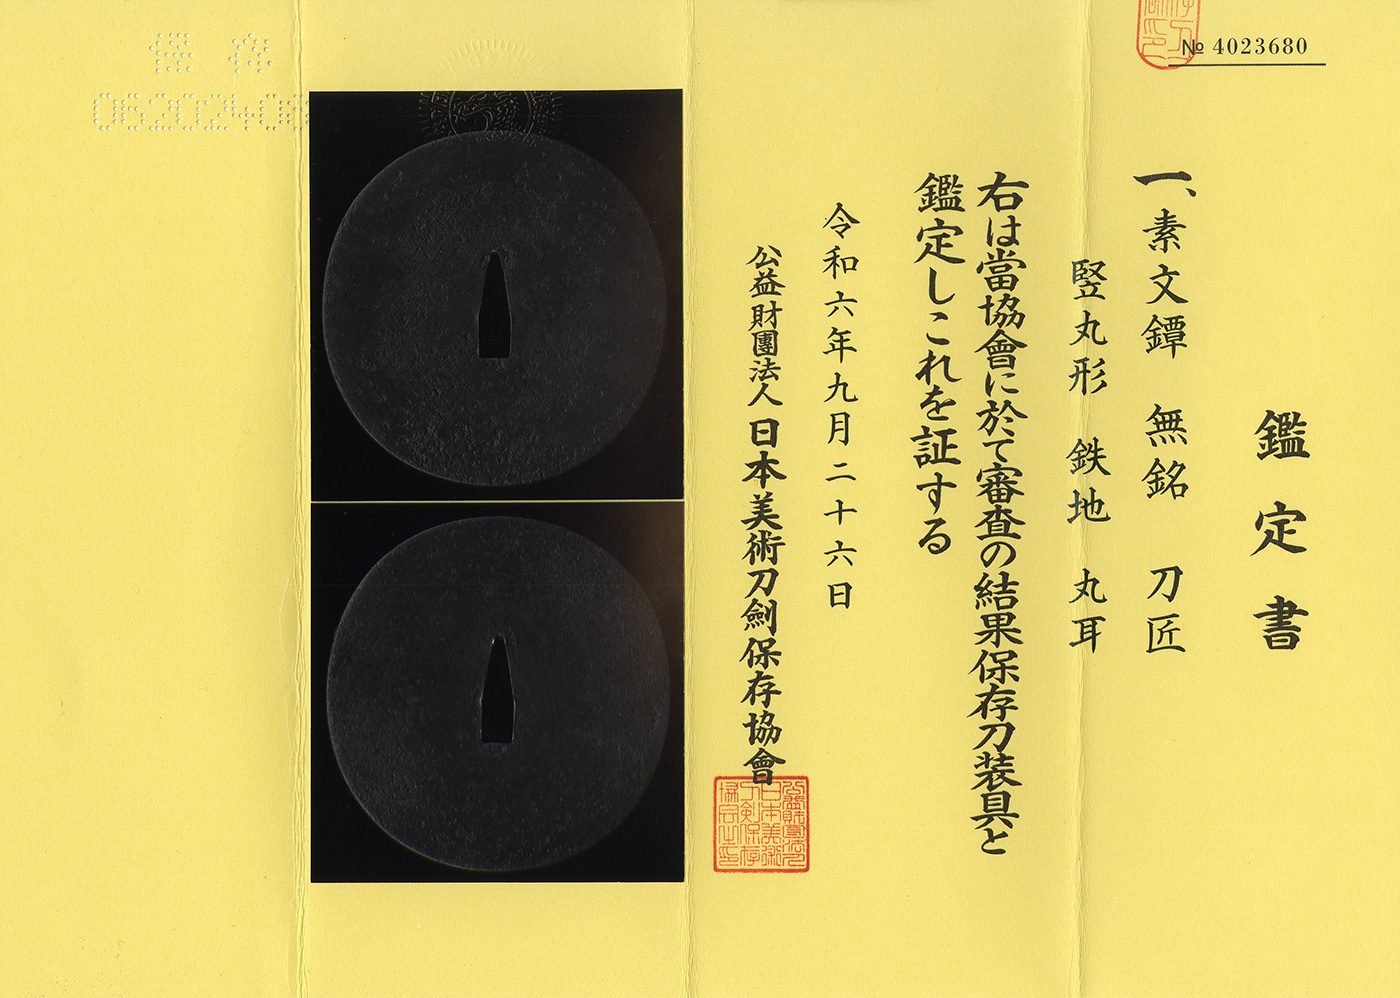 № 4023680
鑑定書
一、素文鐔　無銘　刀匠
竪丸形　鉄地　丸耳
右は當協會に於て審査の結果保存刀装具と
鑑定しこれを証する
令和六年九月二十六日
公益財團法人 日本美術刀劍保存協會
保存